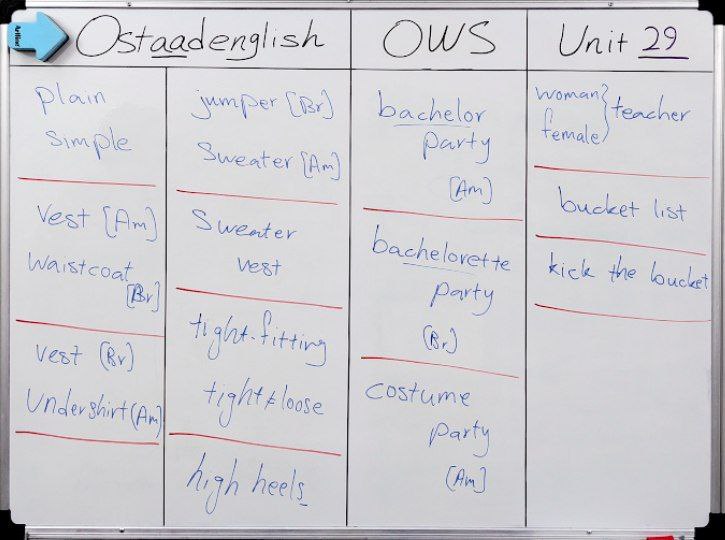 Ostaadenglish
OWS
Unit 29
plain
simple
vest [Am]
waistcoat
[Br]
vest (Br)
Undershirt (Am)
jumper [Br]
Sweater [Am]
Sweater
vest
tight-fitting
tight≠loose
high heels
bachelor
party
[Am]
bachelorette
party
(Br)
costume
party
(Am]
woman } teacher
female
bucket list
kick the bucket